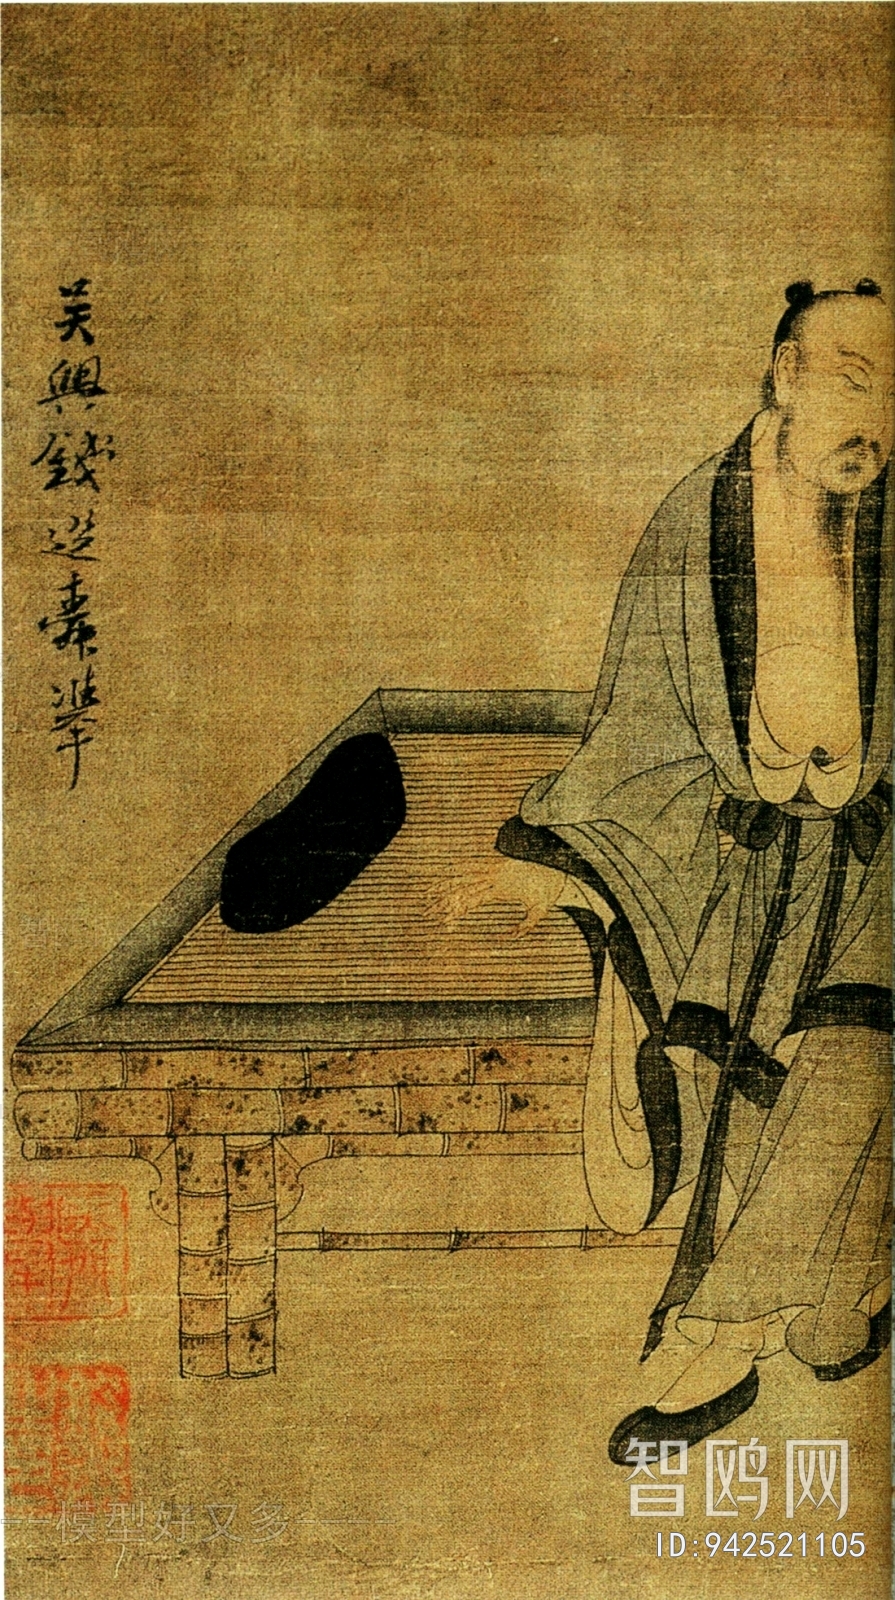 吴興錢選舜舉
智鸥网
ID:942521105
一模型好又多一